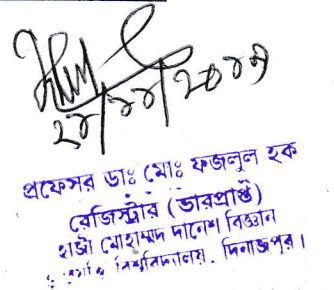 প্রফেসর ডাঃ মোঃ ফজলুল হক
রেজিস্ট্রার (ভারপ্রাপ্ত)
হাজী মোহাম্মদ দানেশ বিজ্ঞান
বিশ্ববিদ্যালয়, দিনাজপুর।